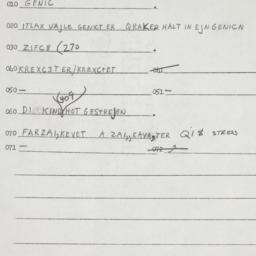 010 GENIC
020 ITLAX VAJLE GENIKT ER QRAKER HALT IN EJN GENICA
030 ZIFCE (270
040 KREXCIT ER/KREXCTET 041
050 — 051 —
(409
060 DI KIND HOT GESTREJEN
070 FARZAJ,KEVET A ZAJ,KAVATER Q'I STRESS
071 — 072